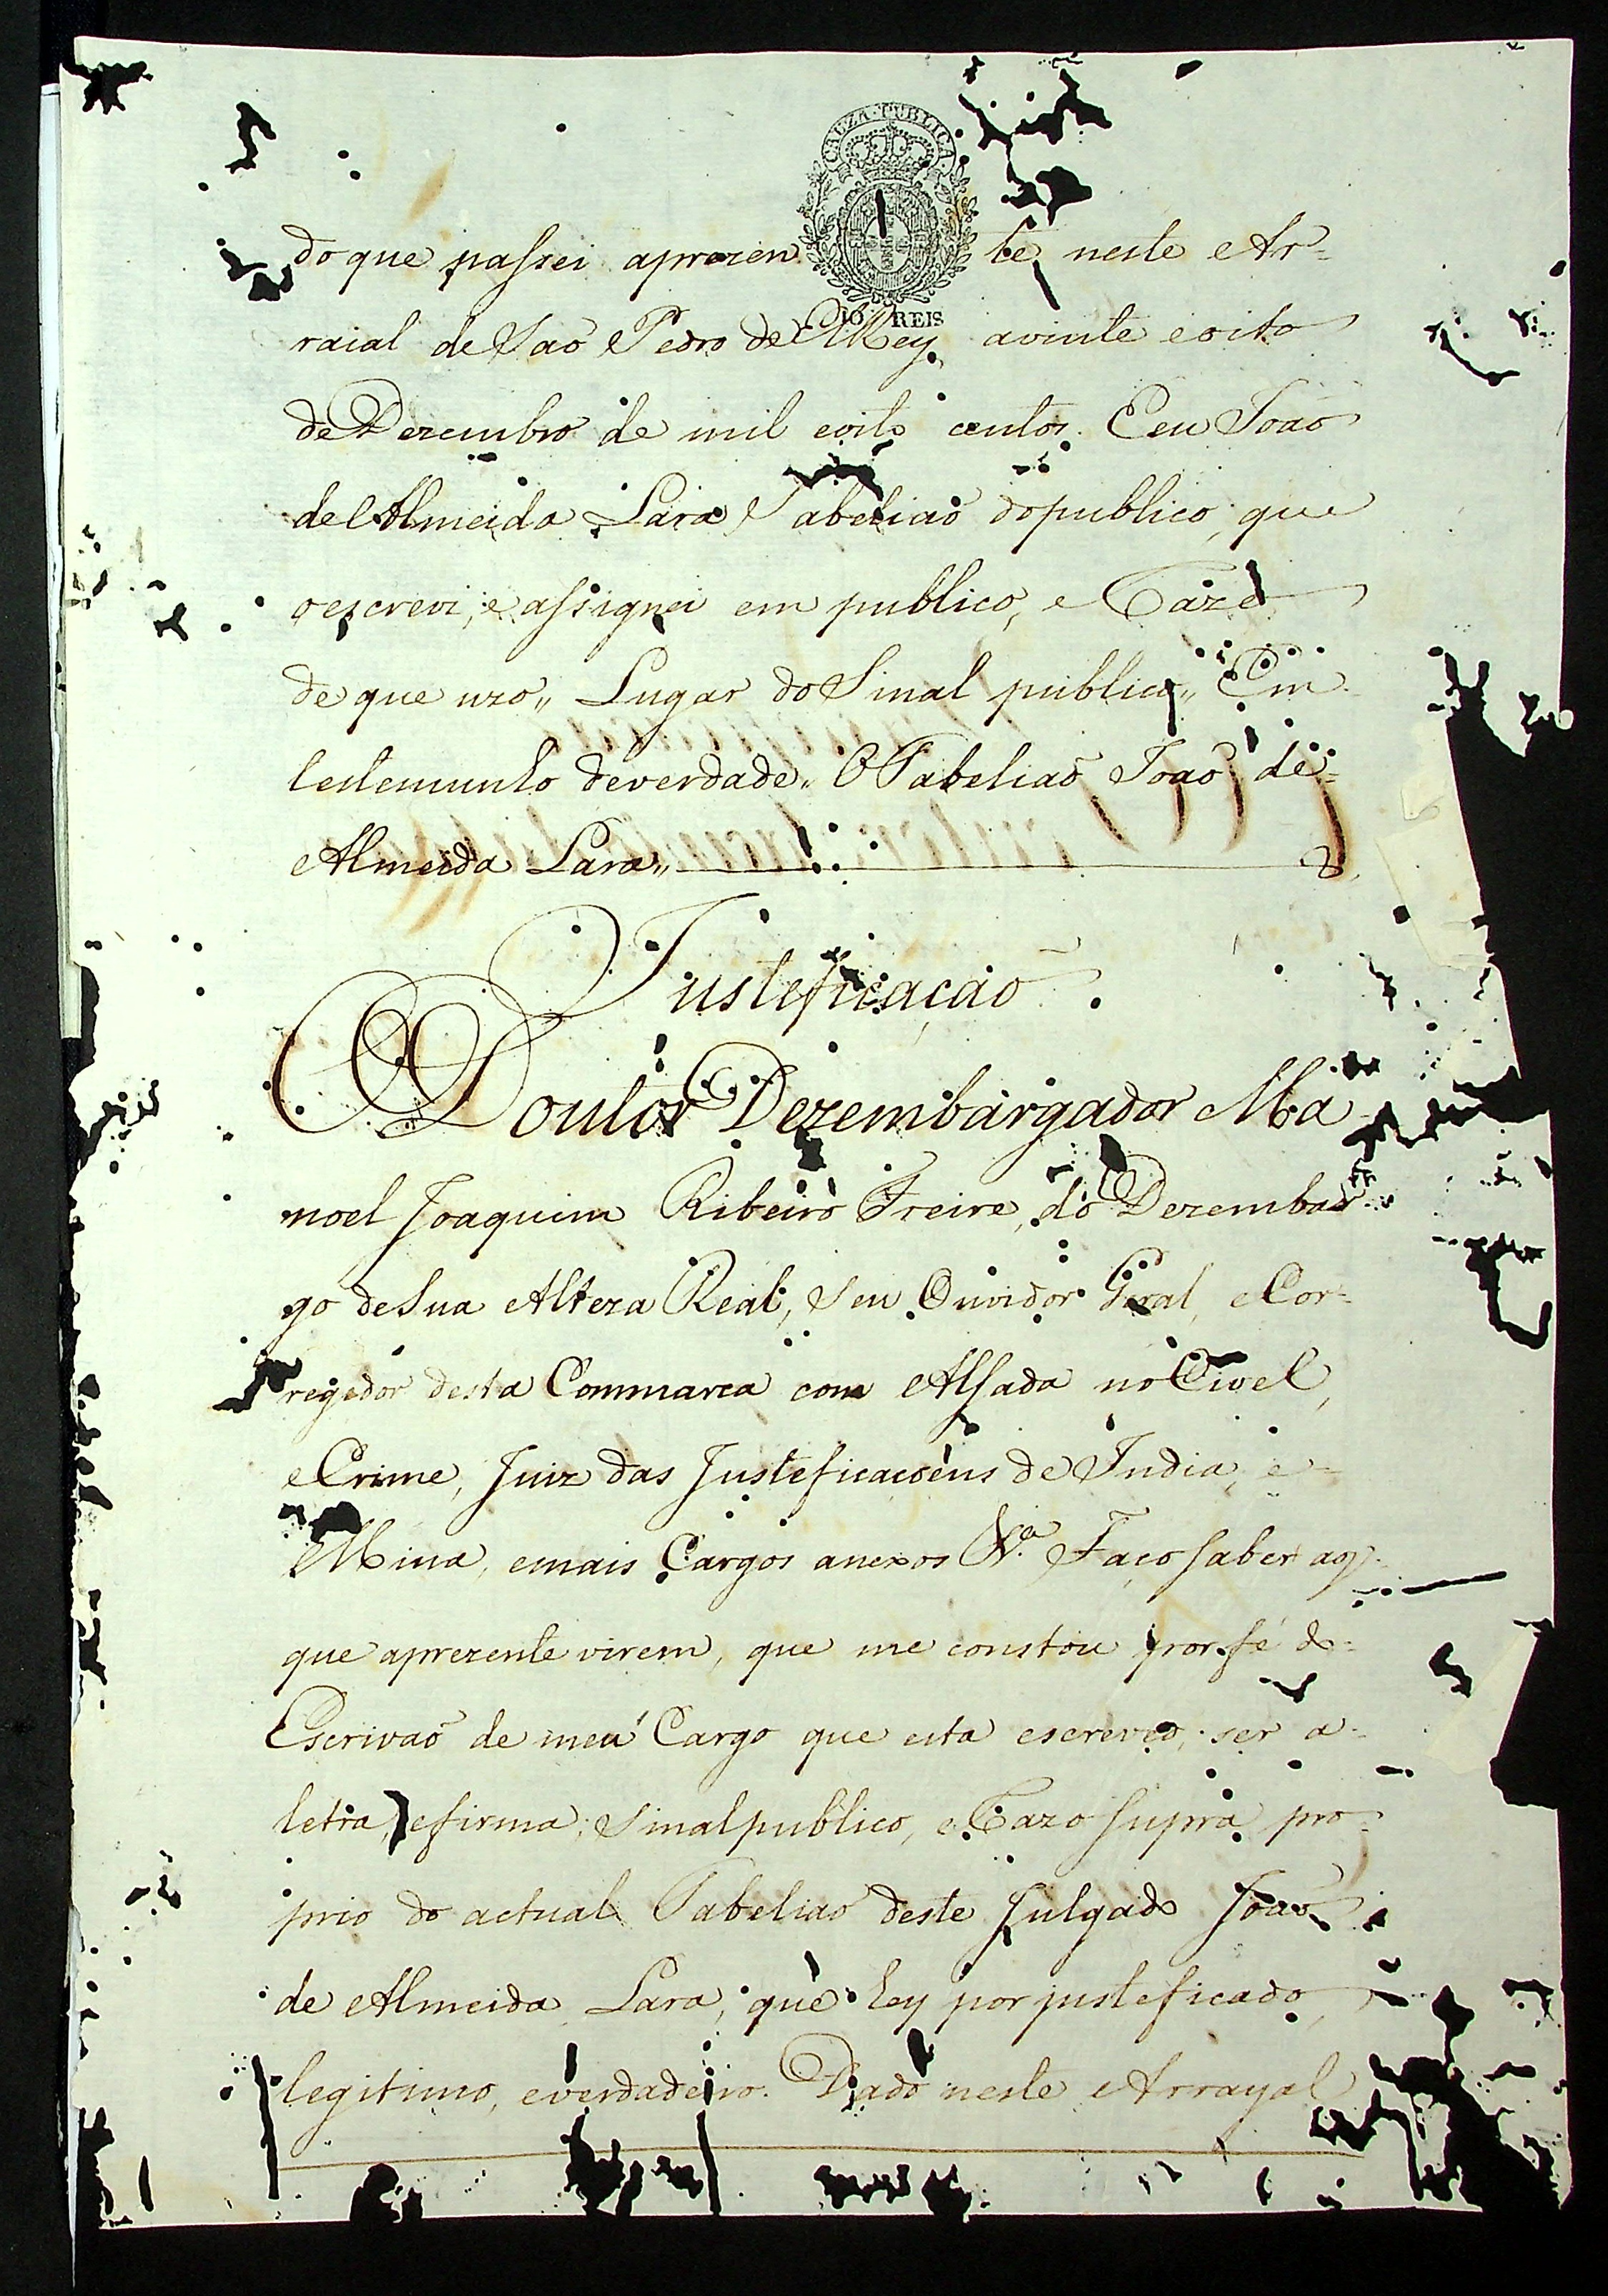 CAUZA PUBLICA
10 REIS
do que passei aprezen te neste Ar=
raial de Saõ Pedro de ElRey avinte eoito
de Dezembro de mil eoito centos. E eu Joaõ
de Almeida Lara Tabeliaõ dopublico, que
oescrevi, e assignei em publico, e Razo
de que uzo,, Lugar do Sinal publico,, Em
testemunho deverdade,, O Tabeliaõ Joaõ de=
Almeida Lara,,
Justeficaçaõ
O Doutor Dezembargador Ma
noel Joaquim Ribeiro Freire, do Dezembar
go deSua Alteza Real, Seu Ouvidor Geral, e Cor=
regedor desta Commarca com Alsada no Civel,
e Crime, Juiz das Justeficacoens de India, e=
Mina, emais Cargos anexos &.ª Faço saber aos
que aprezente virem, que me constou por fé do=
Escrivaõ de meu Cargo que esta escreveo, ser a=
letra, efirma, Sinalpublico, e Razo supra pro=
prio do actual Tabeliaõ deste Julgado Joaõ
de Almeida Lara, que hey por justeficado,
legitimo, everdadeiro. Dado neste Arrayal